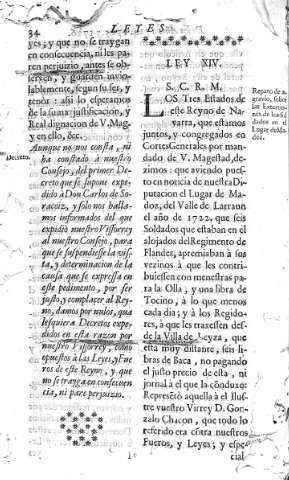 34
LEYES
yes; y que no se traygan
en consecuencia, ni les pa-
ren perjuizio, antes se ob-
serven, y guarden inviol-
ablemente, segun su ser, y
tenor: asi lo esperamos
de la suma justificacion, y
Real dignacion de V. Mag.
y en ello, &c.
Decreto.
Aunque no nos consta, ni
ha constado à nuestro
Consejo, del primer De-
creto que se supone expe-
dido à Don Carlos de
y sòlo nos halla-
mos informados del que
expidiò nuestro Visorrey
al nuestro Consejo, para
que se suspendiesse la vis-
ta, y determinacion de la
causa que se expressa en
este pedimento, por ser
justo, y complacer al Rey-
no, damos por nulos, qua
lesquiera Decretos expe-
didos en esta razon por
nuestro Visorrey, como
opuestos à las Leyes, y Fue
ros de este Reyno, y que
no se trayga en consecuen
cia, ni pare perjuizio.
LEY XIV.
S. C. R. M.
LOS Tres Estados de
este Reyno de Na-
varra, que estamos
juntos, y congregados en
Cortes Generales por man-
dado de V. Magestad, de-
zimos: que aviendo pues-
to en noticia de nuestra Di-
putacion el Lugar de Ma-
doz, del Valle de Larraun
el año de 1722, que seis
Soldados que estaban en el
alojados del Regimento de
Flandes, apremiaban à sus
vezinos à que les contri-
buiessen con menestras pa-
ra la Olla; y una libra de
Tocino, à lo que menos
cada dia; y à los Regido-
res, à que les traxessen des-
de la Villa de Leyza, que
està muy distante, seis li-
bras de Baca, no pagando
el justo precio de esta, ni
jornal à el que la conduzo:
Representò aquella à el Ilus-
tre vuestro Virrey D. Gon-
zalo Chacon, que todo lo
referido era contra nuestros
Fueros, y Leyes; y espe-
cial
Reparo de a-
gravio, sobre
las
nes de los sol
dados en el
Lugar de Ma-
doz.